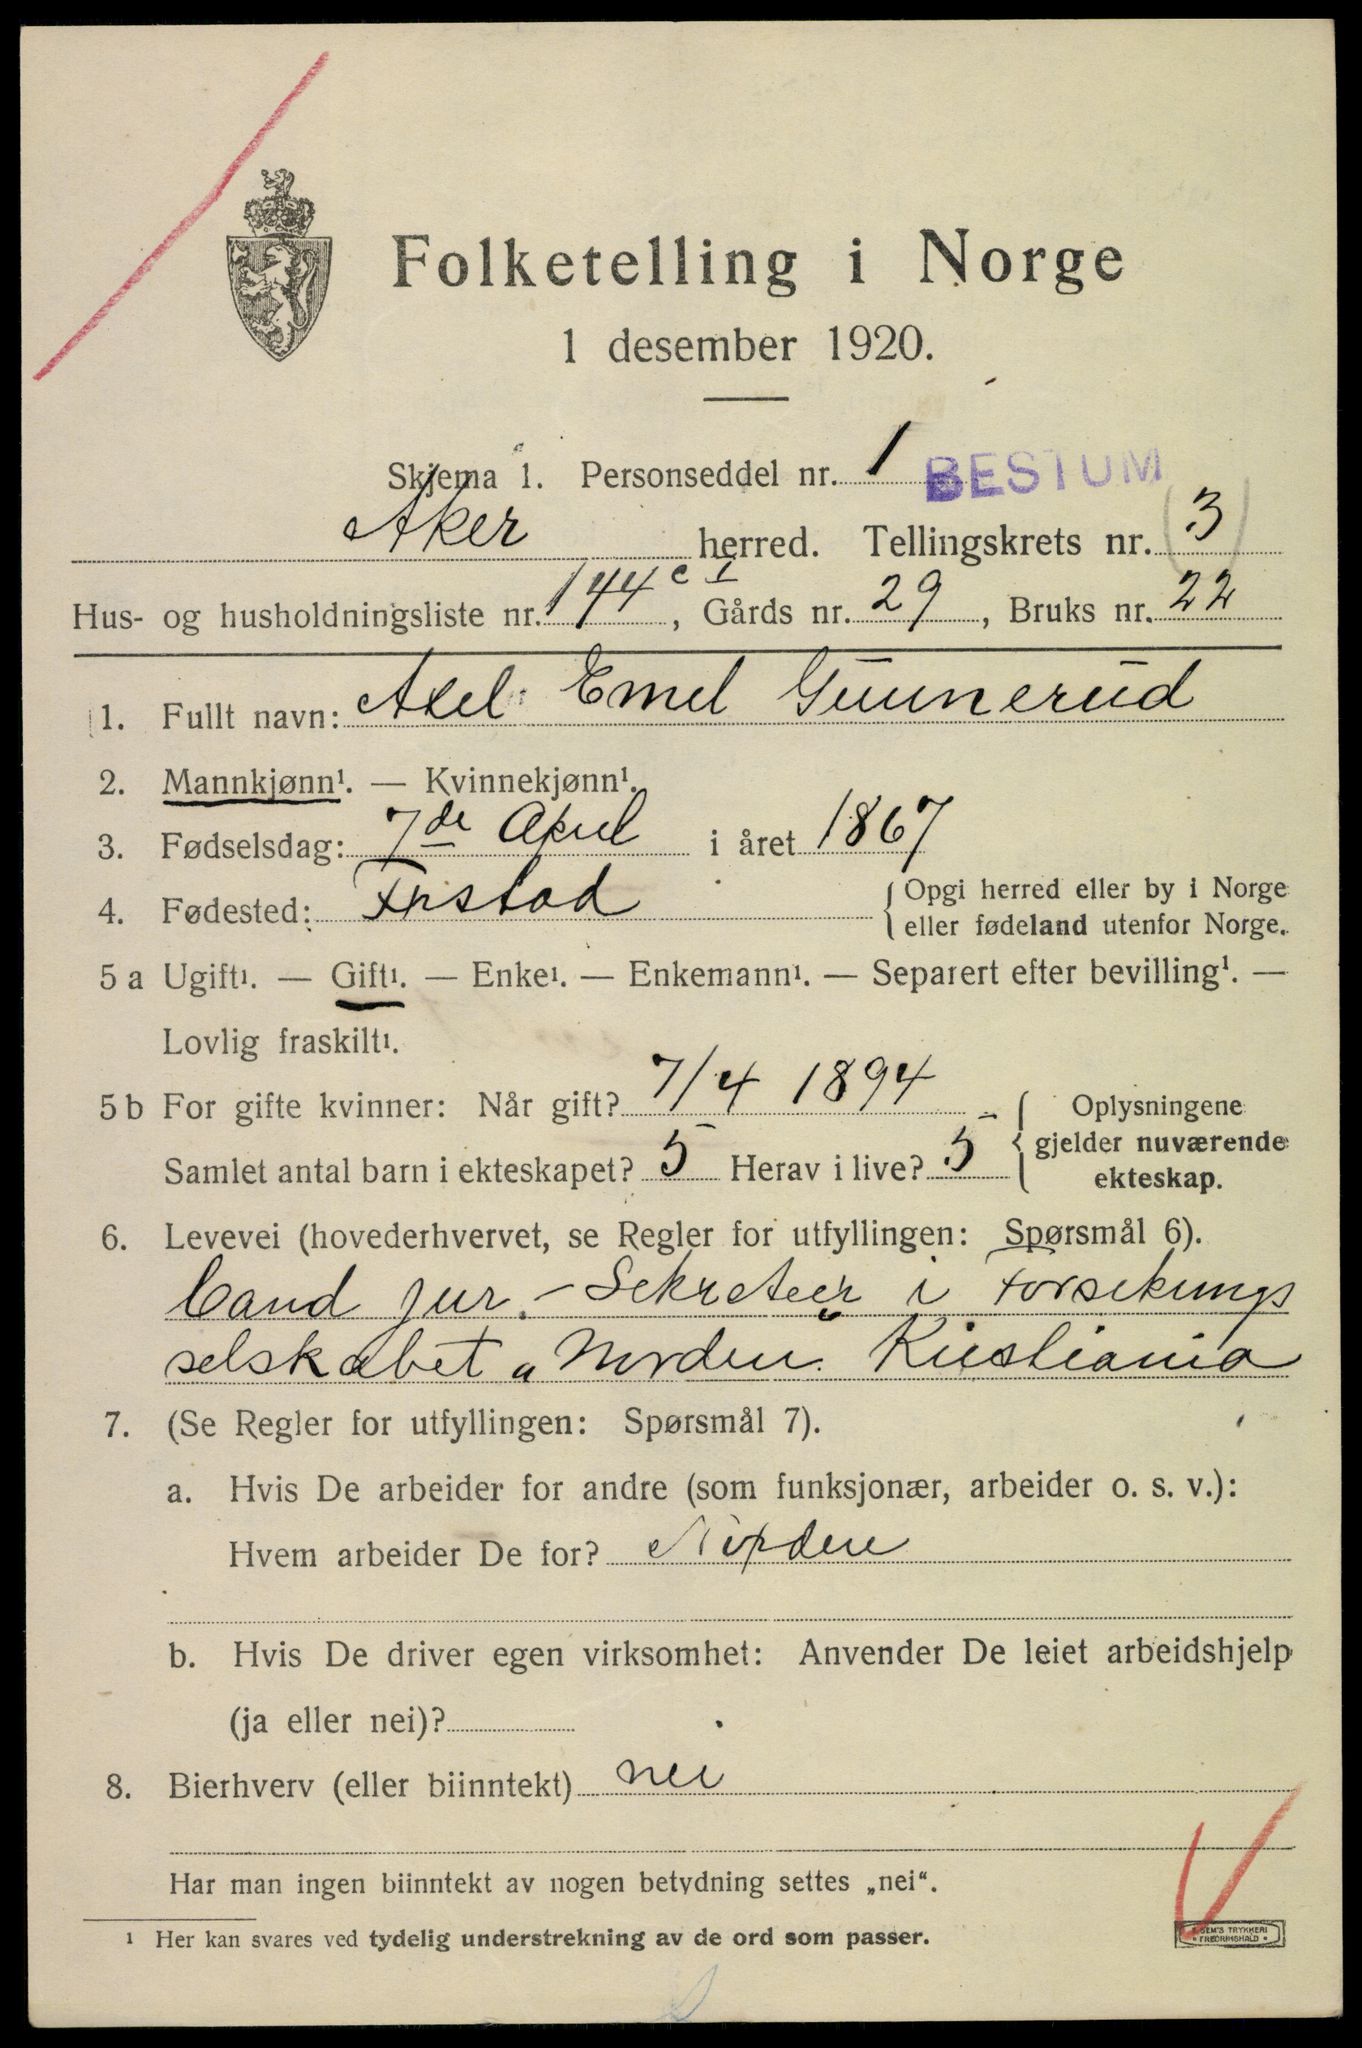 Folketelling i Norge
1 desember 1920.
Skjema 1. Personseddel nr. 1 BESTUM
Aker herred. Tellingskrets nr. (3)
Hus- og husholdningsliste nr. 144 c I, Gårds nr. 29, Bruks nr. 22
1. Fullt navn: Axel Emel Gŭnnerŭd
2. Mannkjønn¹. — Kvinnekjønn¹.
3. Fødselsdag: 7de April i året 1867
4. Fødested: Frstad { Opgi herred eller by i Norge
eller fødeland utenfor Norge.
5 a Ugift¹. — Gift¹. — Enke¹. — Enkemann¹. — Separert efter bevilling¹. —
Lovlig fraskilt¹.
5 b For gifte kvinner: Når gift? 7/4 1894 { Oplysningene
gjelder nuværende
Samlet antal barn i ekteskapet? 5 Herav i live? 5
ekteskap.
6. Levevei (hovederhvervet, se Regler for utfyllingen: Spørsmål 6).
Cand jur. - Sekretær i Forsikrings
selskabet „Norden" Kristiania
7. (Se Regler for utfyllingen: Spørsmål 7).
a. Hvis De arbeider for andre (som funksjonær, arbeider o. s. v.):
Hvem arbeider De for? Norden
b. Hvis De driver egen virksomhet: Anvender De leiet arbeidshjelp
(ja eller nei)?
8. Bierhverv (eller biinntekt) nei
Har man ingen biinntekt av nogen betydning settes „nei“.
¹ Her kan svares ved tydelig understrekning av de ord som passer.
SEM'S TRYKKERI
FREDRIKSHALD